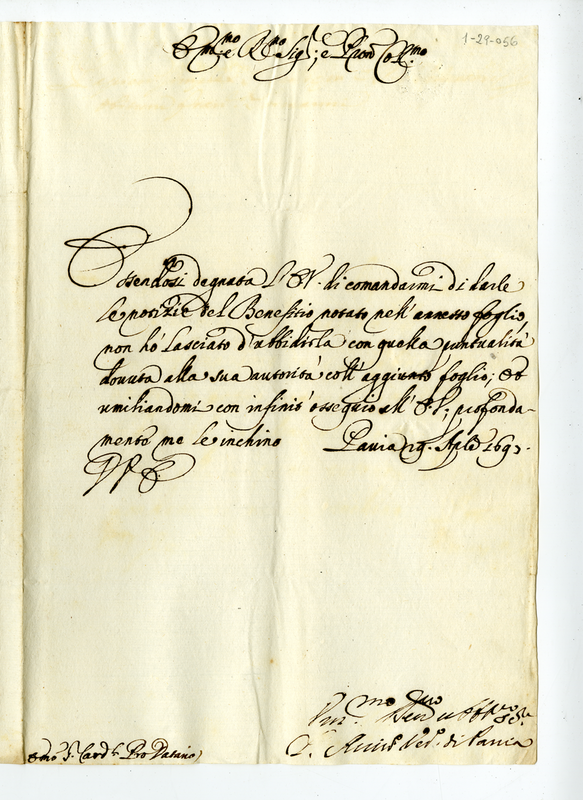 Em.mo e R.mo Sig.r, e Pron Col.mo
1-29-056
Essendosi degnata l'E.V. di comandarmi di darle
le notizie del Benefitio notato nell'annesso foglio,
non hò lasciato d'ubbidirla con quella puntualità
dovuta alla sua autorità coll'aggiunto foglio; Et
umiliandomi con infinito ossequio all'E.V., profonda-
mente me le inchino Pavia 19. Aple 169
D V E
Um.mo Devmo obblmo Se.re
Vesc. di Pavia
Emo S.r Card.le Pro Datario